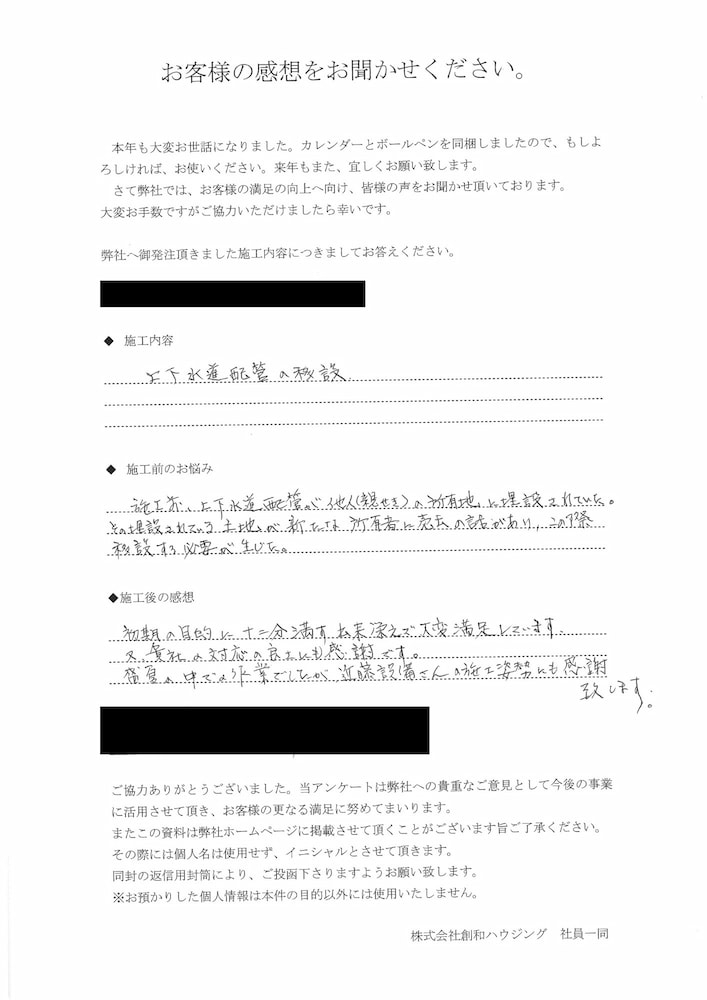 お客様の感想をお聞かせください。
本年も大変お世話になりました。カレンダーとボールペンを同梱しましたので、もしよ
ろしければ、お使いください。来年もまた、宜しくお願い致します。
さて弊社では、お客様の満足の向上へ向け、皆様の声をお聞かせ頂いております。
大変お手数ですがご協力いただけましたら幸いです。
弊社へ御発注頂きました施工内容につきましてお答えください。
◆ 施工内容
上下水道配管の移設
◆ 施工前のお悩み
施工前、上下水道配管が他人(親せき)の所有地に埋設されていた。
その埋設されている土地が新たな所有者に売去の話があり、この際
移設する必要が生じた。
◆施工後の感想
初期の目的に十二分満す出来栄えで大変満足しています。
又、貴社の対応の良さにも感謝です。
猛夏の中での作業でしたが、近藤設備さんの施工姿勢にも感謝
致します。
ご協力ありがとうございました。当アンケートは弊社への貴重なご意見として今後の事業
に活用させて頂き、お客様の更なる満足に努めてまいります。
またこの資料は弊社ホームページに掲載させて頂くことがございます旨ご了承ください。
その際には個人名は使用せず、イニシャルとさせて頂きます。
同封の返信用封筒により、ご投函下さりますようお願い致します。
※お預かりした個人情報は本件の目的以外には使用いたしません。
株式会社創和ハウジング 社員一同